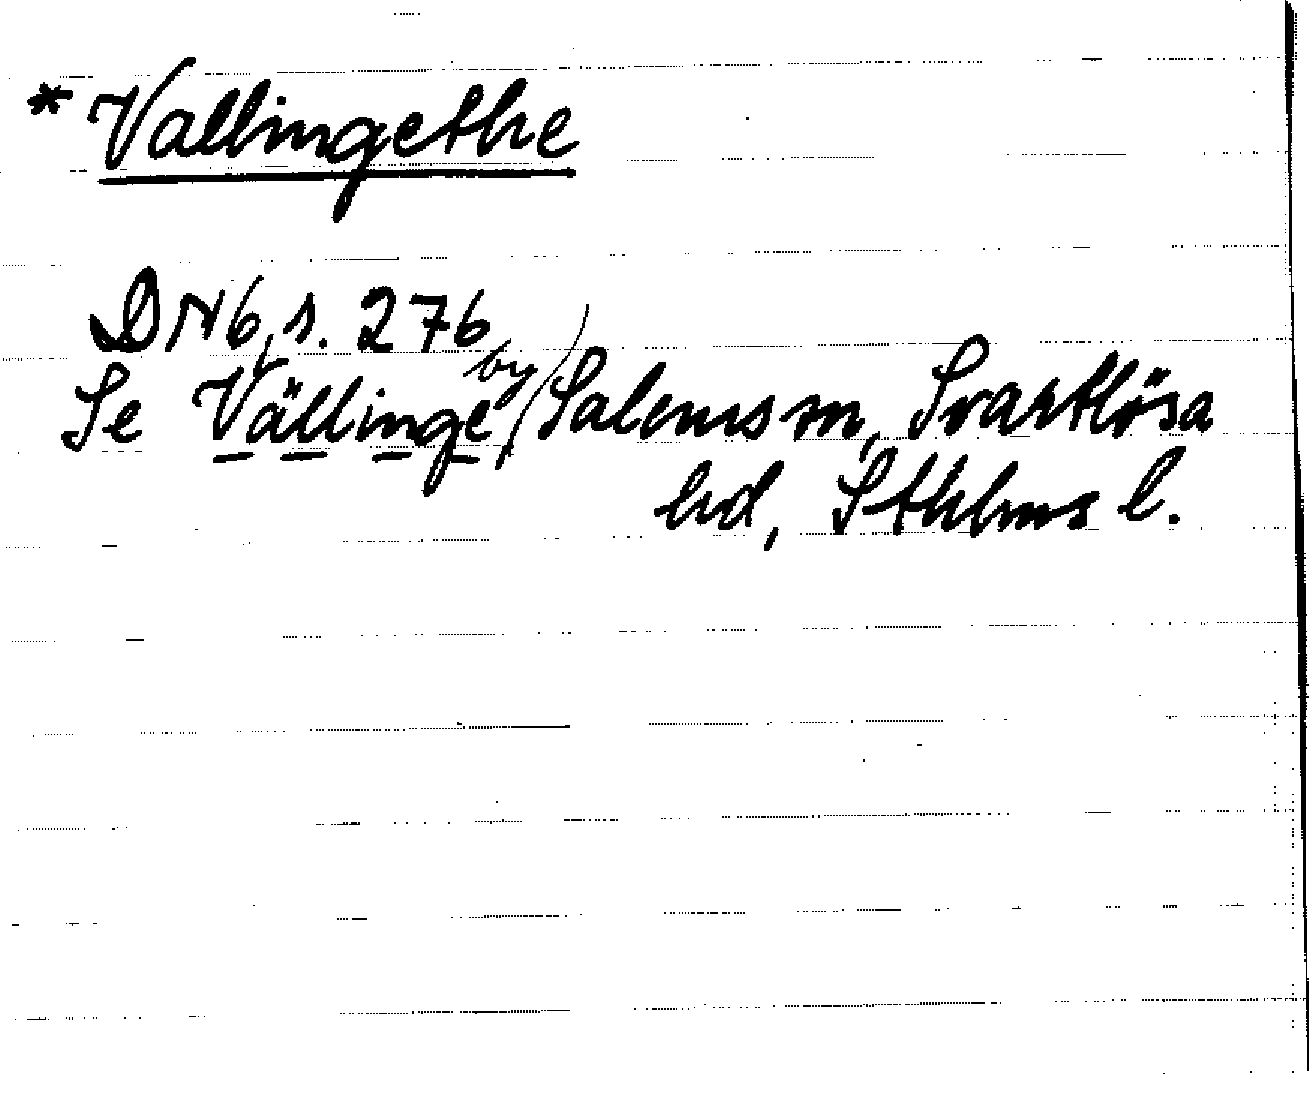 * Vallingethe
DN6, s. 276
Se Vällinge by, Salems sn, Svartlösa
hd, Sthlms l.